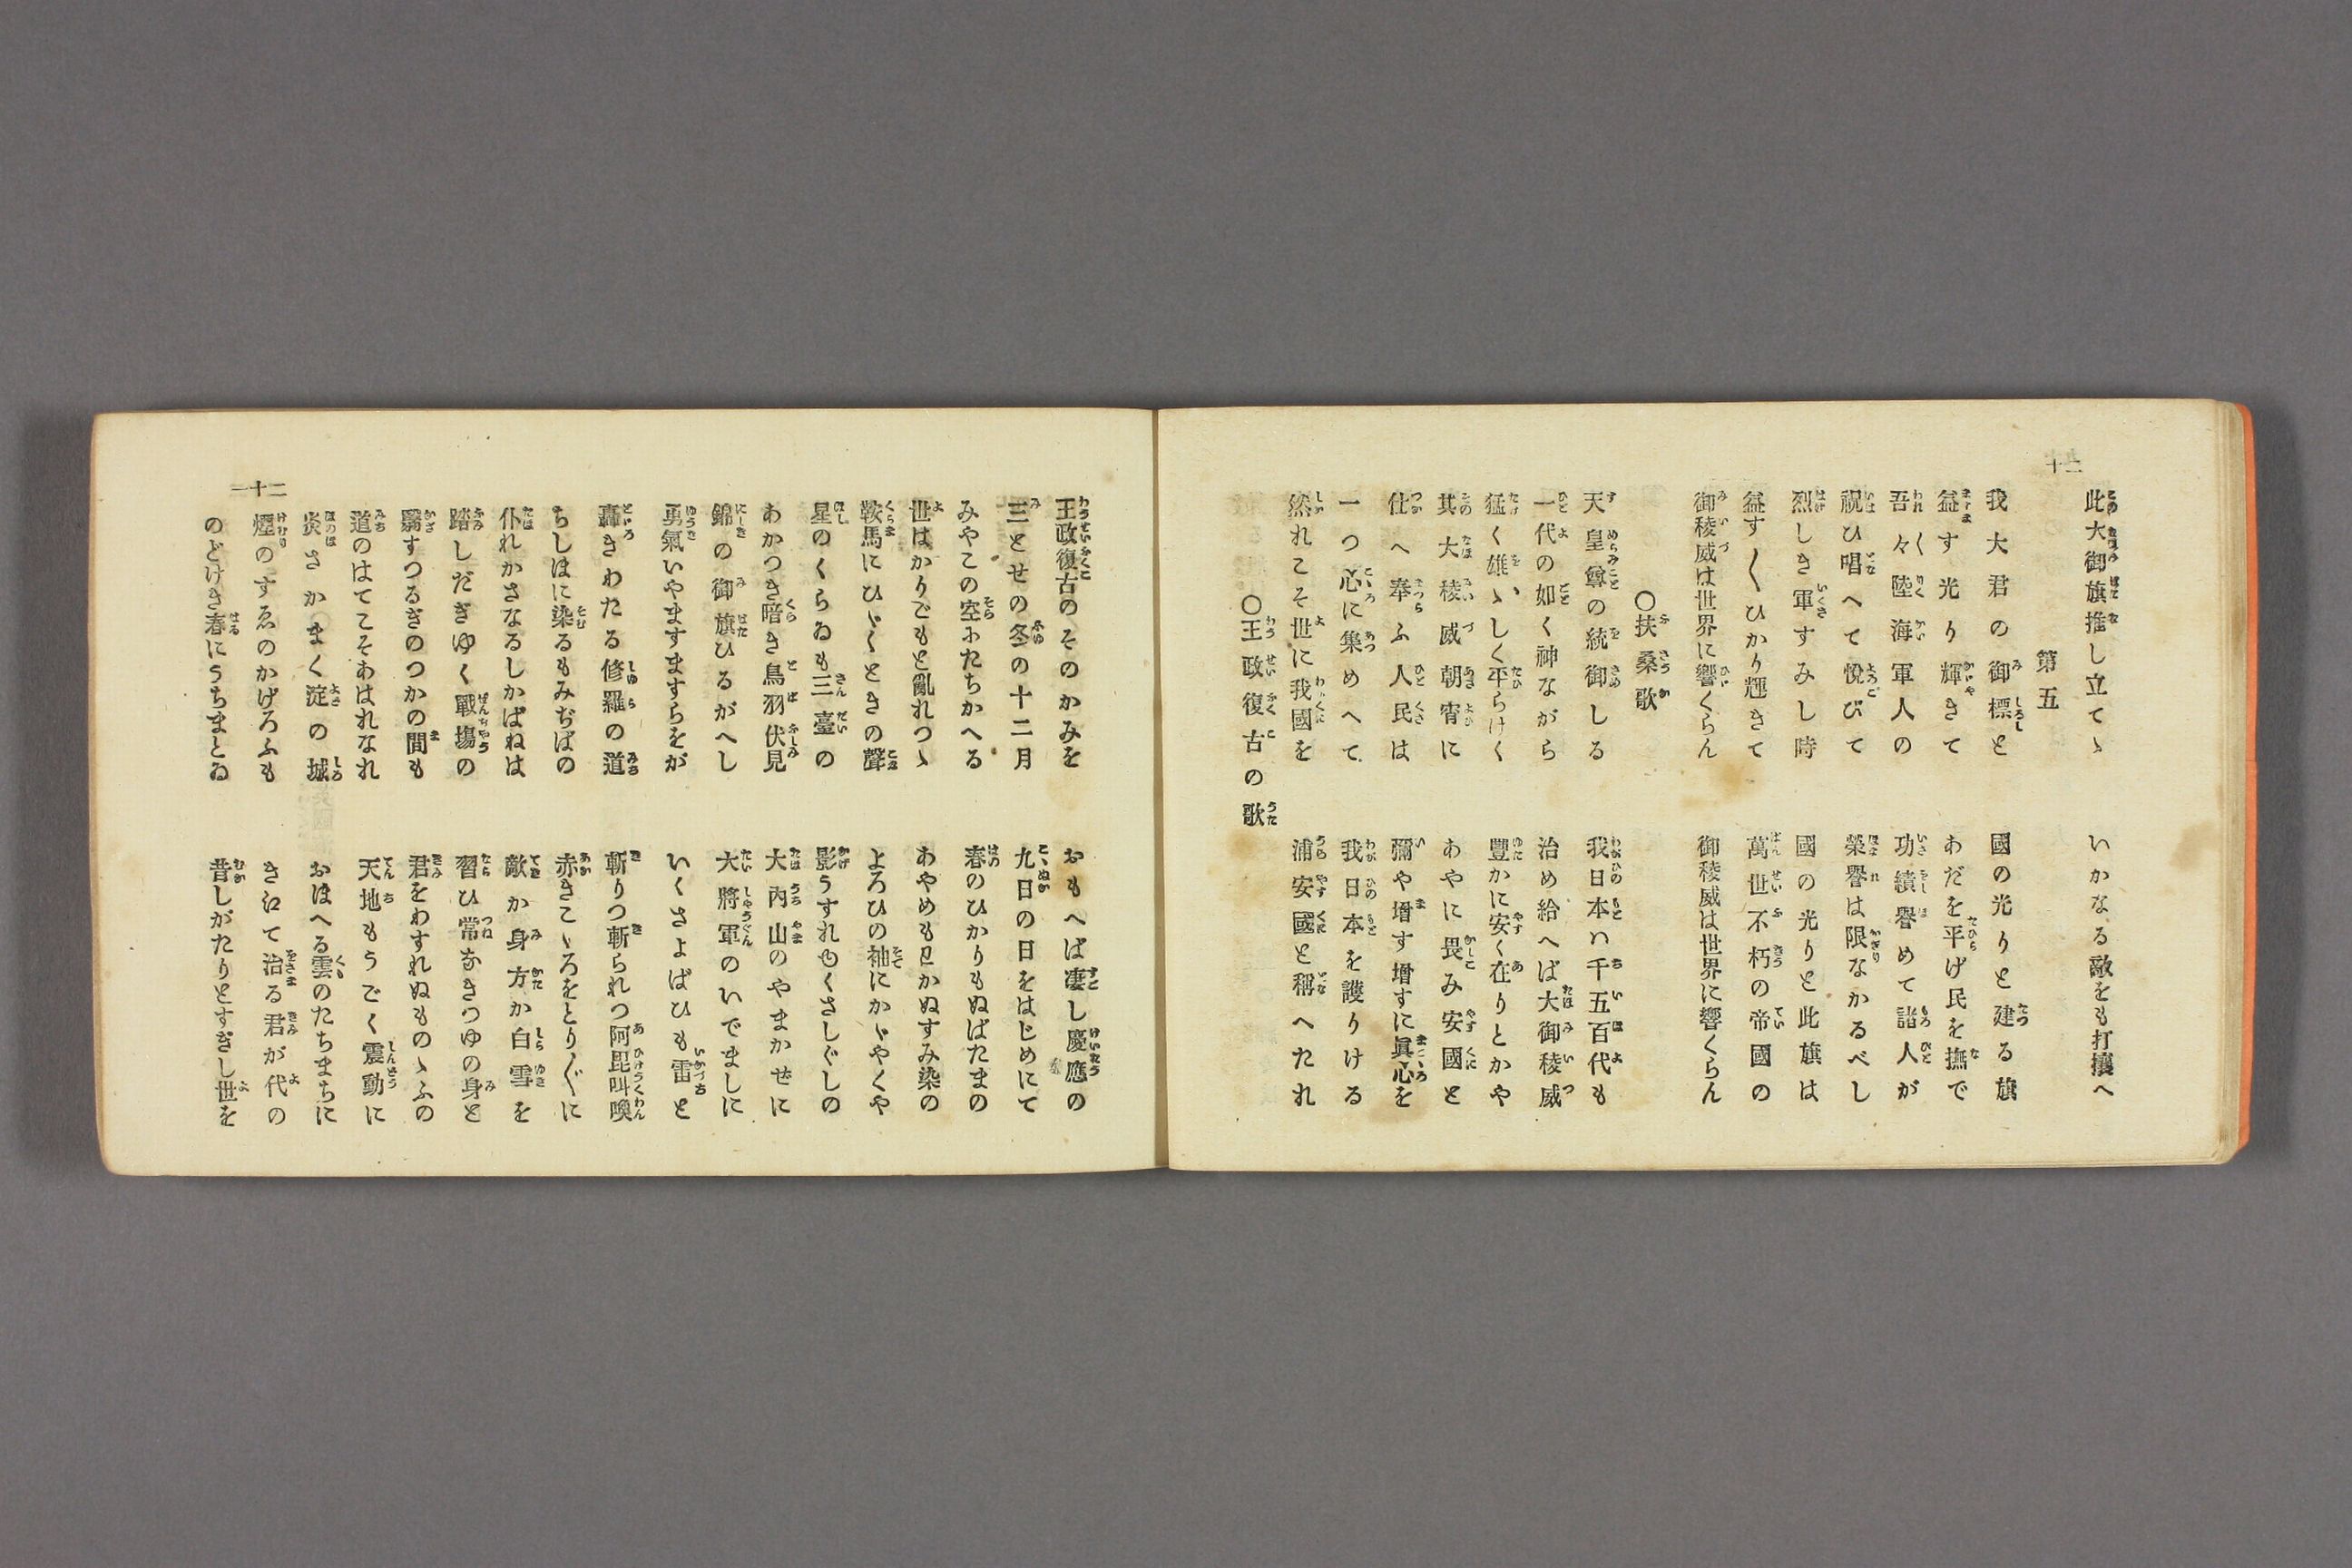 二十
此大御旗推し立てゝ　いかなる敵をも打攘へ
第五
我大君の御標と　國の光りと建る旗
益す光り輝きて　あだを平げ民を撫で
吾々陸海軍人の　功績譽めて諸人が
祝ひ唱へて悅びて　榮譽は限なかるべし
烈しき軍すみし時　國の光りと此旗は
益す〱ひかり輝きて　萬世不朽の帝國の
御稜威は世界に響くらん　御稜威は世界に響くらん
〇扶桑歌
天皇尊の統御しる　我日本ハ千五百代も
一代の如く神ながら　治め給へば大御稜威
猛く雄ゝしく平らけく　豐かに安く在りとかや
其大稜威朝宵に　あやに畏み安國と
仕へ奉ふ人民は　彌や增す增すに眞心を
一つ心に集めへて　我日本を護りける
然れこそ世に我國を　浦安國と稱へたれ
〇王政復古の歌
王政復古のそのかみを　おもへば凄し慶應の
三とせの冬の十二月　九日の日をはじめにて
みやこの空にたちかへる　春のひかりもぬばたまの
世はかりごもと亂れつゝ　あやめもわかぬすみ染の
鞍馬にひゞくときの聲　よろひの袖にかゞやくや
星のくらゐも三臺の　影うすれゆくさしぐしの
あかつき暗き鳥羽伏見　大內山のやまかせに
錦の御旗ひるがへし　大將軍のいでましに
勇氣いやますますらをが　いくさよばひも雷と
轟きわたる修羅の道　斬りつ斬られつ阿毘叫喚
ちしほに染るもみぢばの　赤きこゝろをとり〲に
仆れかさなるしかばねは　敵か身方か白雪を
踏しだきゆく戰塲の　習ひ常なきつゆの身と
翳すつるぎのつかの間も　君をわすれぬものゝふの
道のはてこそあはれなれ　天地もうごく震動に
炎さかまく淀の城　おほへる雲のたちまちに
煙のすゑのかげろふも　きえて治る君が代の
のどけき春にうちまとゐ　昔しがたりとすぎし世を
二十一